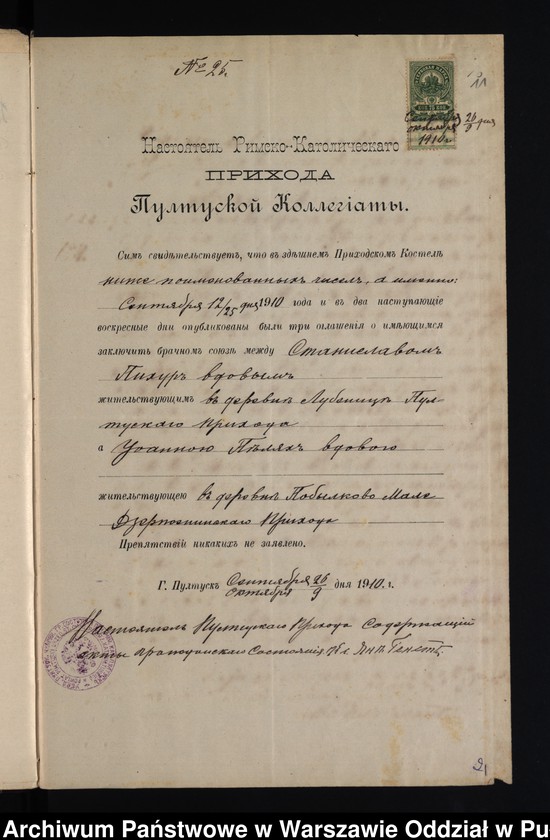 № 25.
21
Сентября 26
октября 9 дня
1910 г.
Настоятель Римско-Католическаго
ПРИХОДА
Пултуской Коллегіаты.
Симъ свидѣтельствуетъ, что въ здѣшнемъ Приходскомъ Костелѣ
ниже поименованныхъ чиселъ, а именно:
Сентября 12/25 дня 1910 года и въ два наступающіе
воскресные дни опубликованы были три оглашенія о имѣющимся
заключить брачномъ союзѣ между Станиславомъ
Пихуръ вдовымъ
жительствующимъ въ деревнѣ Лубеницѣ Пул-
тускаго Прихода
а Іоанною Пѣляхъ вдовою
жительствующею въ деревнѣ Побылково Мале
Прихода
Препятствій никакихъ не заявлено.
Г. Пултускъ Сентября 26
октября 9 дня 1910 г.
Настоятель Прихода Содержащій
акты Гражданскаго Состоянія Кс.
21
Archiwum Państwowe w Warszawie Oddział w Pu